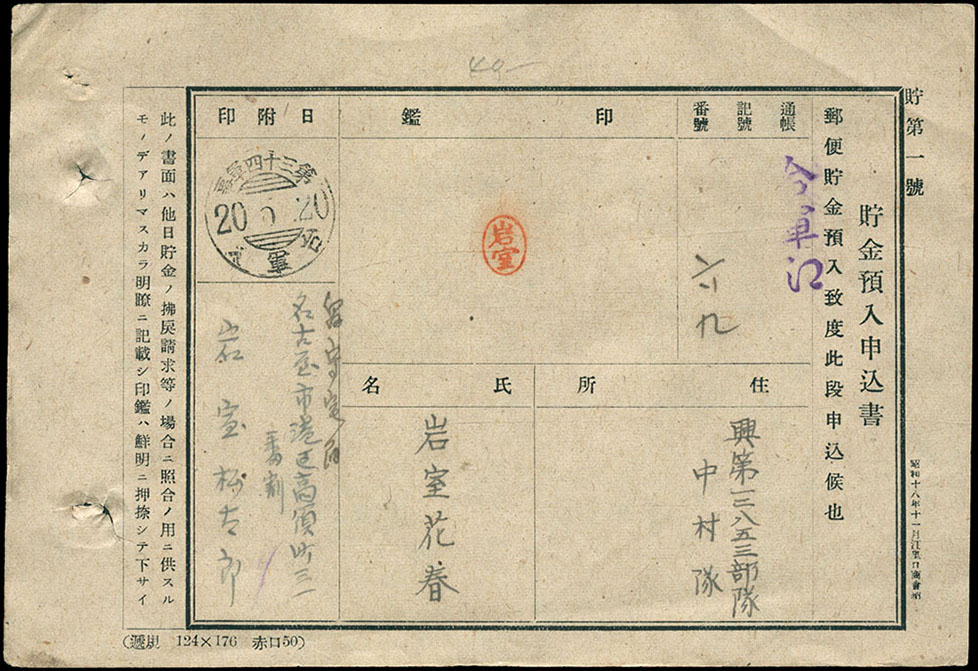 貯第一號
貯金預入申込書
昭和十八年十一月江里口商會納
郵便貯金預入致度此段申込候也
通帳
記號
番號
今軍江
六九
印鑑
岩室
日附印
第三十四軍事
20 20
住所
興第一三八五三部隊
中村隊
氏名
岩室花春
留守宅
名古屋市港区高
岩室松太郎
此ノ書面ハ他日貯金ノ拂戻請求等ノ場合ニ照合ノ用ニ供スル
モノデアリマスカラ明瞭ニ記載シ印鑑ハ鮮明ニ押捺シテ下サイ
(遞規 124×176 赤口50)
40-